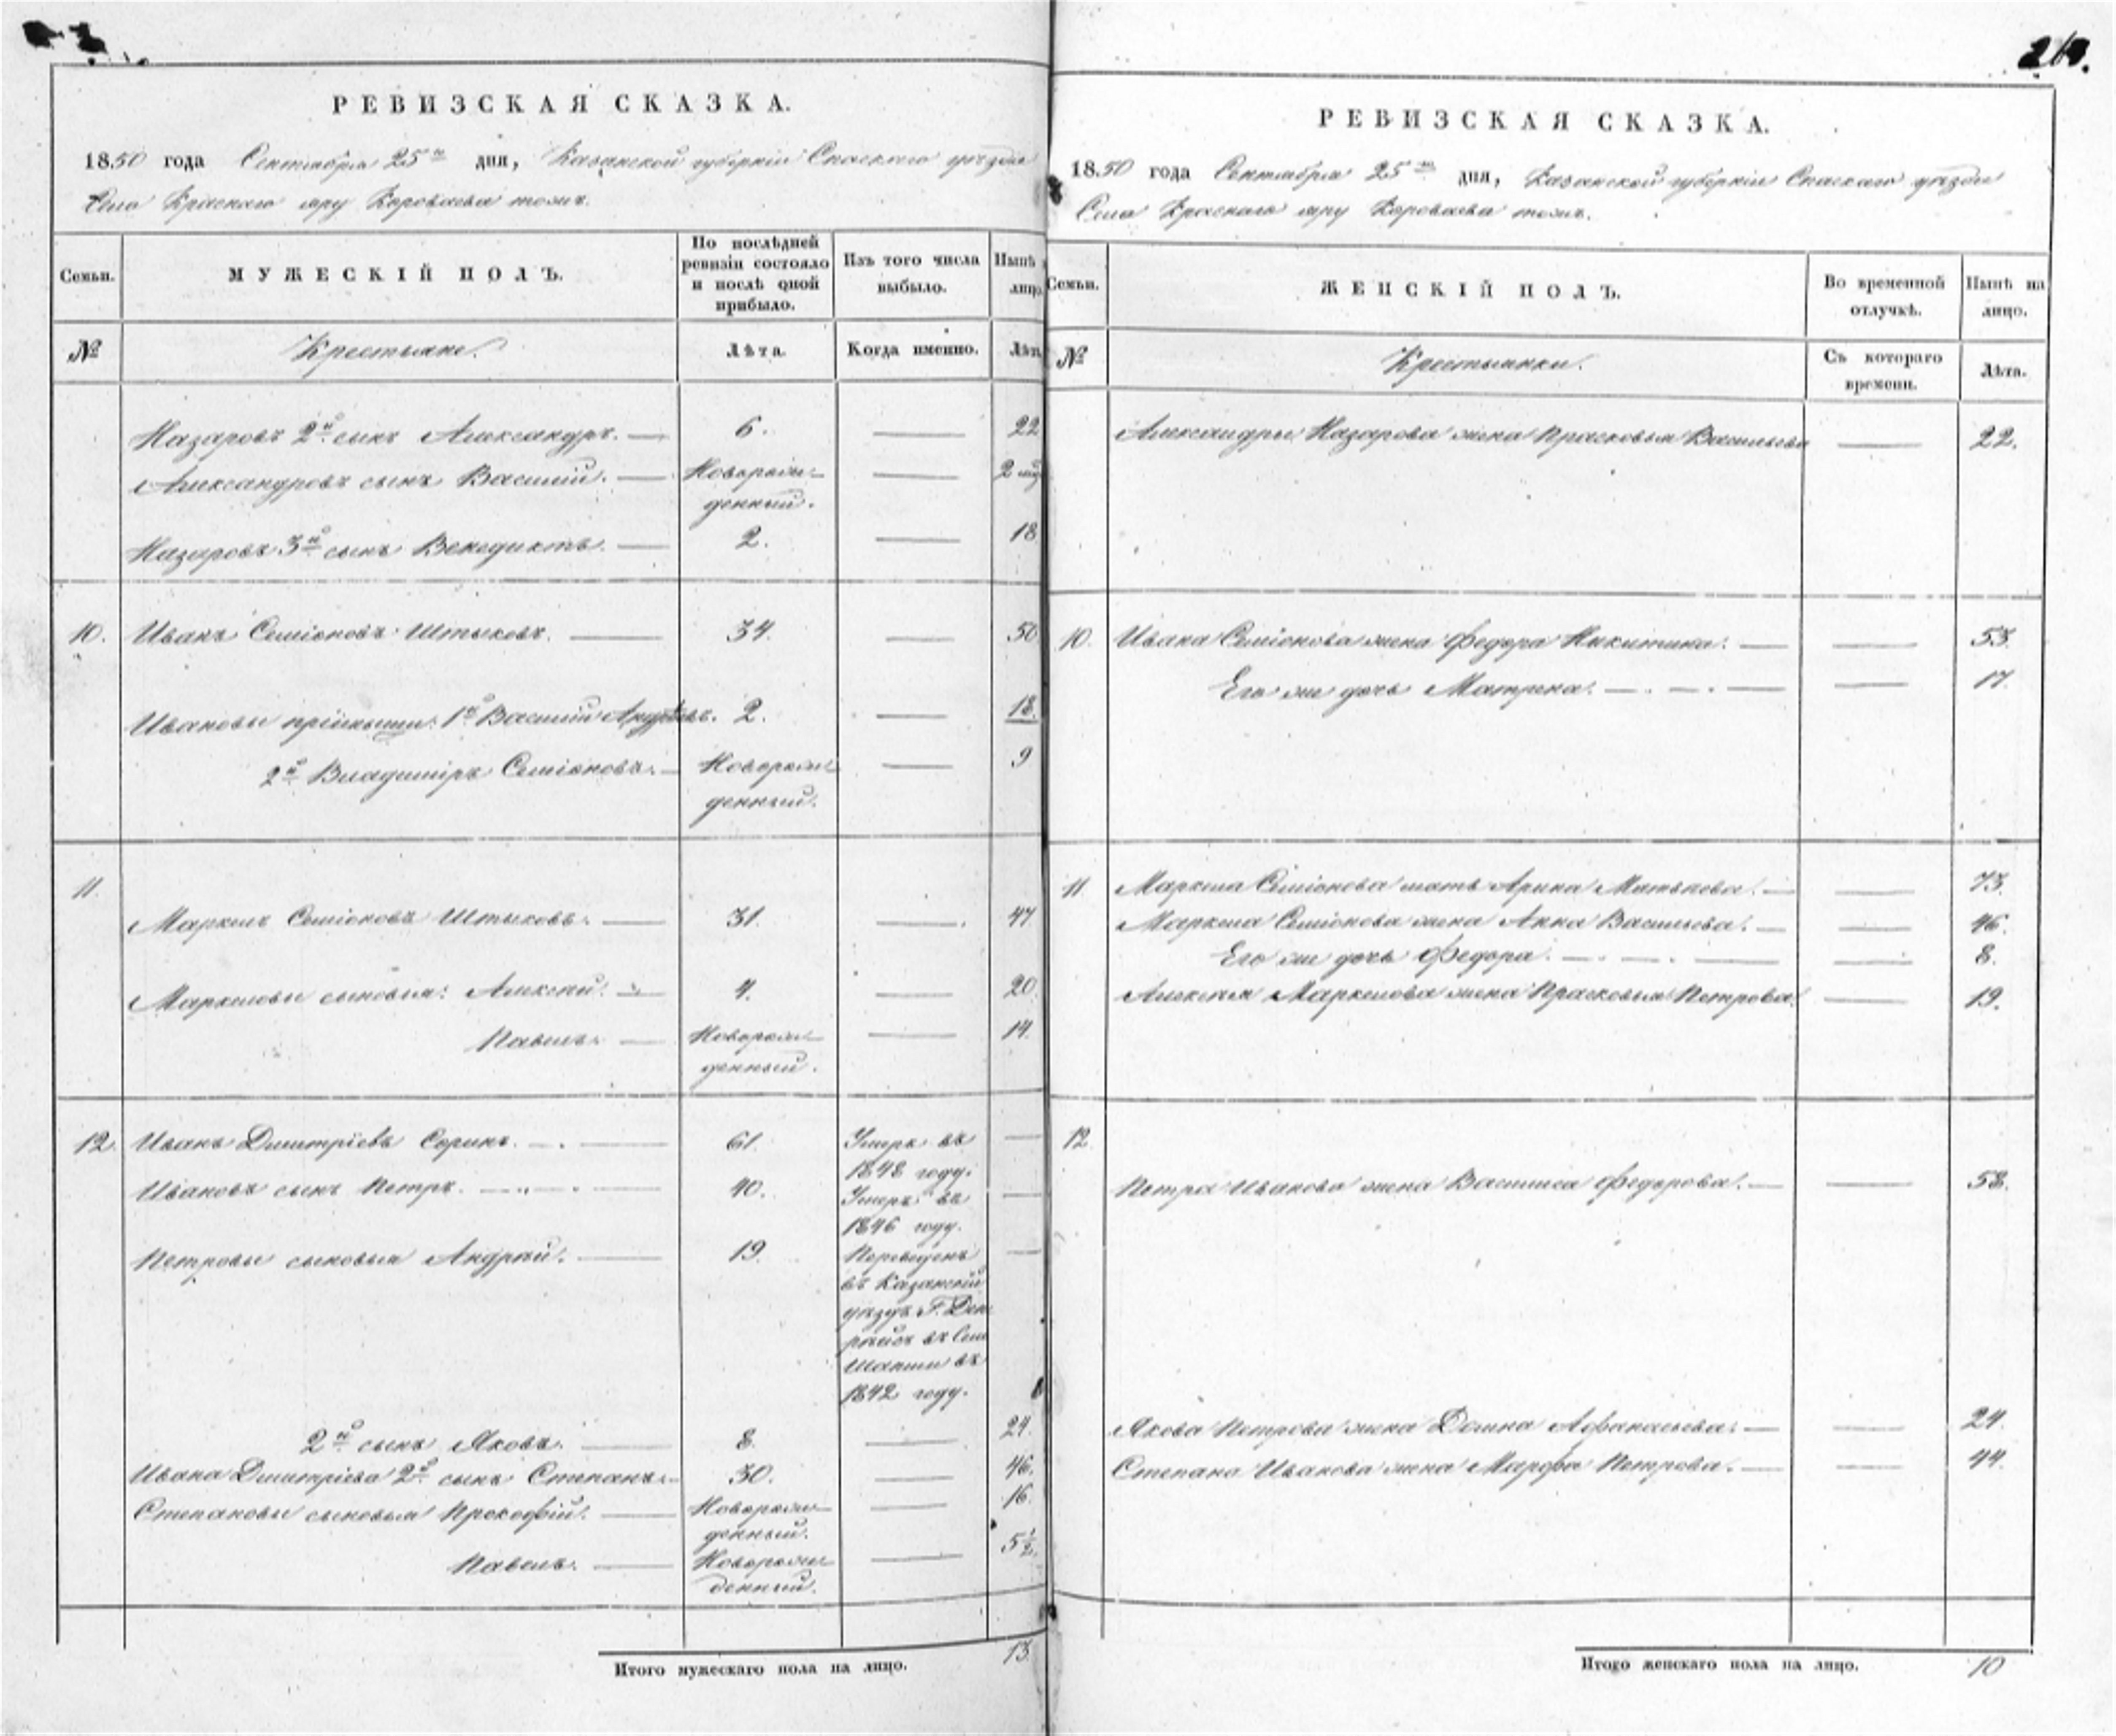 РЕВИЗСКАЯ СКАЗКА.
1850 года Сентября 25го дня, Казанской губерніи Спаскаго уѣзда
Села Краснаго яру Короваева тожъ.
Семьи.
МУЖЕСКІЙ ПОЛЪ.
По послѣдней ревизіи состояло и послѣ оной прибыло.
Изъ того числа выбыло.
Нынѣ лицо
№
Крестьяне.
Лѣта.
Когда именно.
Лѣта
Назаровъ 2й сынъ Александръ. — 6. — 22
Александровъ сынъ Василій. — Новорож- — 2 мѣ
денный.
Назаровъ 3й сынъ Венедиктъ. — 2. — 18
10. Иванъ Семіоновъ Штыковъ. — 34. — 50
Ивановы пріимыши: 1й Василій Андреевъ. 2. — 18.
2й Владиміръ Семіоновъ. — Новорож — 9
денный.
11.
Маркелъ Семіоновъ Штыковъ. — 31. — 47
Маркеловы сыновья: Алексей. — 4. — 20.
Павелъ. — Новорож- — 14.
денный.
12. Иванъ Дмитріевъ Соринъ. — 61. Умеръ въ —
1848 году.
Ивановъ сынъ Петръ. — 40. Умеръ въ —
1846 году.
Петровы сыновья Андрей. — 19. Переведенъ —
въ Казанскій
уѣздъ
въ
1842 году.
2й сынъ Яковъ. — 8. — 24.
Ивана Дмитріева 2й сынъ Степанъ. — 30. — 46.
Степановы сыновья Прокофій. — Новорож- — 16.
денный.
Павелъ. — Новорож — 5½.
денный.
Итого мужескаго пола на лицо. 13
РЕВИЗСКАЯ СКАЗКА.
1850 года Сентября 25го дня, Казанской губерніи Спаскаго уѣзда
Села Краснаго яру Короваева тожъ.
Семьи.
ЖЕНСКІЙ ПОЛЪ.
Во временной отлучкѣ.
Нынѣ на лицо.
№
Крестьянки.
Съ котораго времени.
Лѣта.
Александры Назарова жена Прасковья Васильева — 22.
10. Ивана Семіонова жена Федора Никитина. — — 53.
Его же дочь Матрена. — — 17.
11. Маркела Семіонова мать Арина Матвѣева. — — 73.
Маркела Семіонова жена Анна Васильева. — — 46.
Его же дочь Федора. — — 8.
Алексея Маркелова жена Прасковья Петрова. — 19.
12.
Петра Иванова жена Василиса Федорова. — — 58.
Якова Петрова жена Домна Афанасьева. — — 24.
Степана Иванова жена Марфа Петрова. — — 44.
Итого женскаго пола на лицо. 10